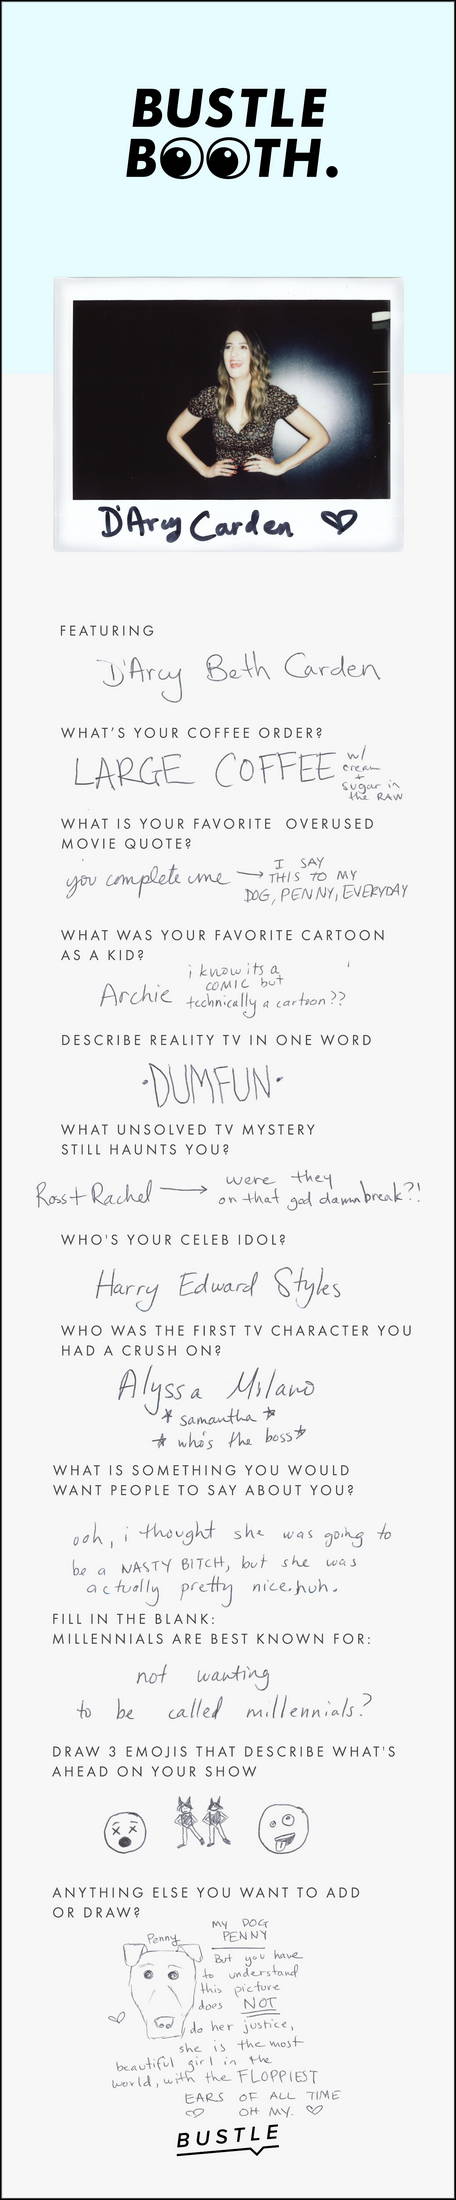 BUSTLE
BOOTH.
D'Arcy Carden
FEATURING
D'Arcy Beth Carden
WHAT'S YOUR COFFEE ORDER?
LARGE COFFEE w/
cream
+
sugar in
the RAW
WHAT IS YOUR FAVORITE OVERUSED
MOVIE QUOTE?
you complete me → I SAY
THIS TO MY
DOG, PENNY, EVERYDAY
WHAT WAS YOUR FAVORITE CARTOON
AS A KID?
Archie i know its a
COMIC but
technically a cartoon??
DESCRIBE REALITY TV IN ONE WORD
·DUMFUN·
WHAT UNSOLVED TV MYSTERY
STILL HAUNTS YOU?
Ross + Rachel → were they
on that god damn break?!
WHO'S YOUR CELEB IDOL?
Harry Edward Styles
WHO WAS THE FIRST TV CHARACTER YOU
HAD A CRUSH ON?
Alyssa Milano
* samantha *
* who's the boss *
WHAT IS SOMETHING YOU WOULD
WANT PEOPLE TO SAY ABOUT YOU?
ooh, i thought she was going to
be a NASTY BITCH, but she was
actually pretty nice. huh.
FILL IN THE BLANK:
MILLENNIALS ARE BEST KNOWN FOR:
not wanting
to be called millennials?
DRAW 3 EMOJIS THAT DESCRIBE WHAT'S
AHEAD ON YOUR SHOW
ANYTHING ELSE YOU WANT TO ADD
OR DRAW?
Penny
MY DOG
PENNY
But you have
to understand
this picture
does NOT
do her justice,
she is the most
beautiful girl in the
world, with the FLOPPIEST
EARS OF ALL TIME
OH MY.
BUSTLE